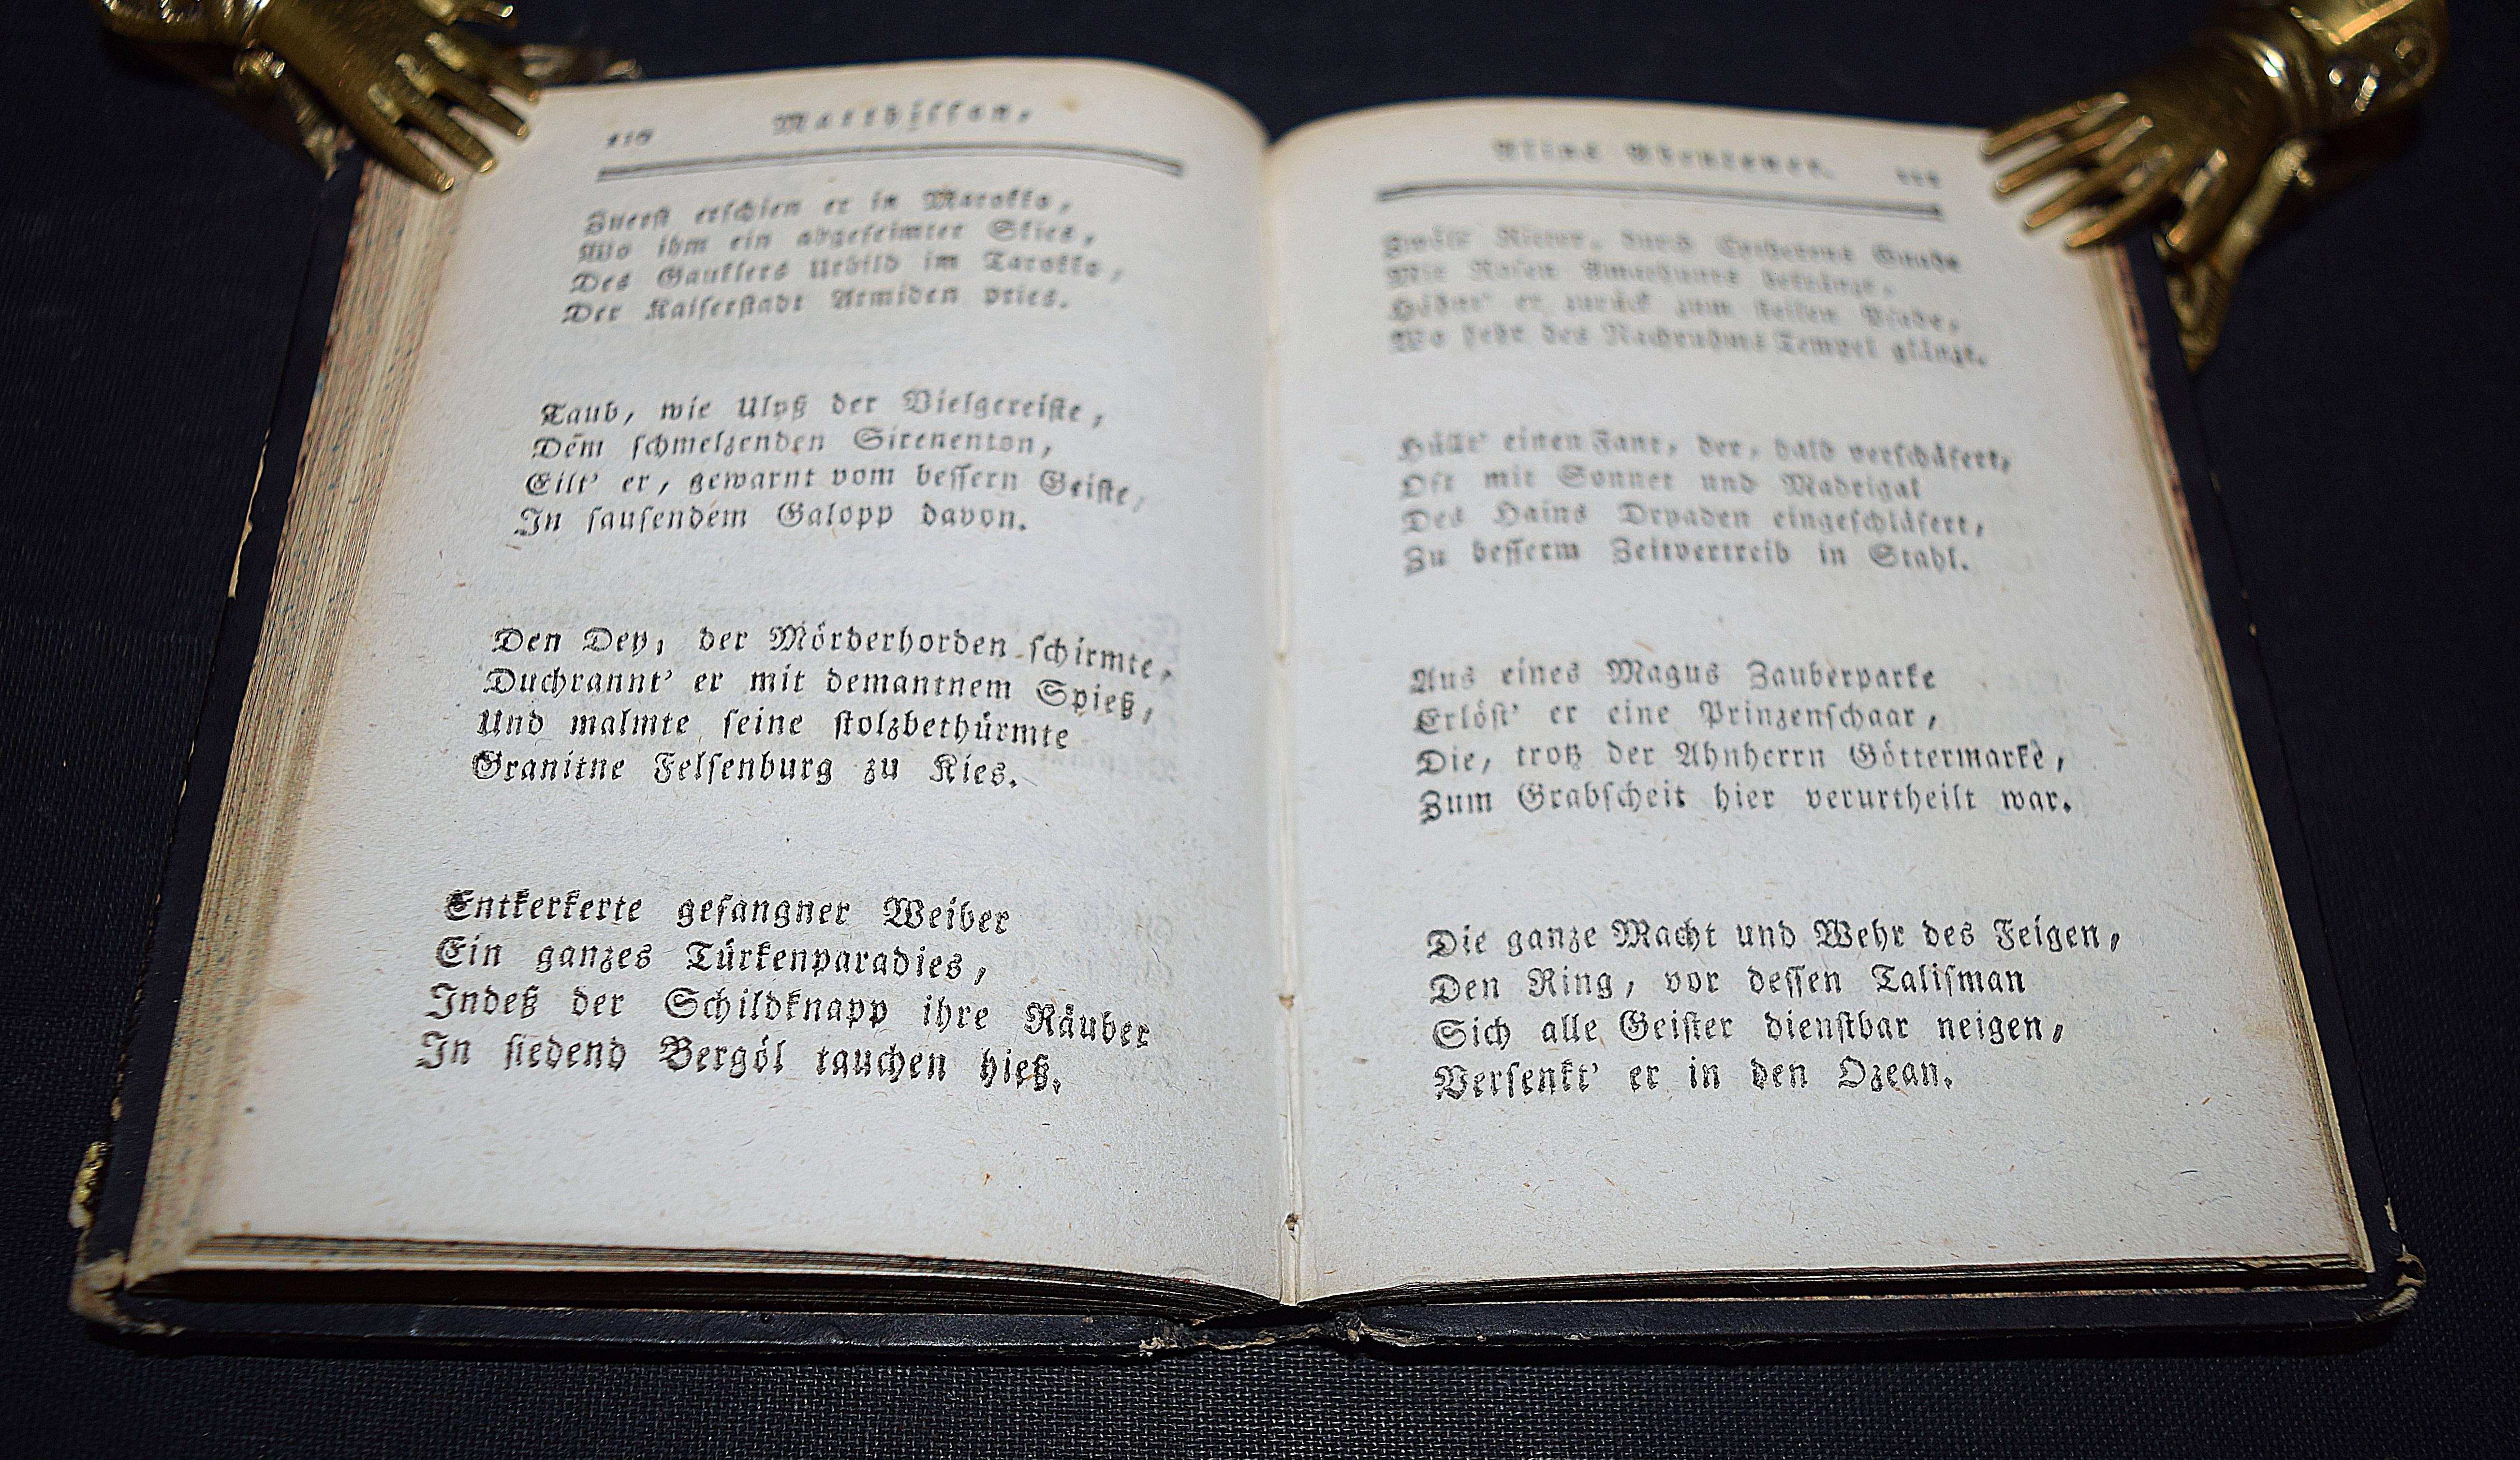 Matthisson,
Zuerst erschien er in Marokko,
Wo ihm ein abgefeimter Skies,
Des Gauklers Urbild im Tarokko,
Der Kaiserstadt Armiden pries.
Taub, wie Ulyß der Vielgereiste,
Dem schmelzenden Sirenenton,
Eilt' er, gewarnt vom bessern Geiste,
In sausendem Galopp davon.
Den Dey, der Mörderhorden schirmte,
Duchrannt' er mit demantnem Spieß,
Und malmte seine stolzbethürmte
Granitne Felsenburg zu Kies.
Entkerkerte gefangner Weiber
Ein ganzes Türkenparadies,
Indeß der Schildknapp ihre Räuber
In siedend Bergöl tauchen hieß.
Zwölf Ritter, durch Cytherens Gnade
Mit Rosen Amathunts bekränzt,
er zurück zum steilen Pfade,
Wo hehr des Nachruhms Tempel glänzt.
Hüllt' einen Fant, der, bald verschäfert,
Oft mit Sonnet und Madrigal
Des Hains Dryaden eingeschläfert,
Zu besserm Zeitvertreib in Stahl.
Aus eines Magus Zauberparke
Erlöst' er eine Prinzenschaar,
Die, trotz der Ahnherrn Göttermarke,
Zum Grabscheit hier verurtheilt war.
Die ganze Macht und Wehr des Feigen,
Den Ring, vor dessen Talisman
Sich alle Geister dienstbar neigen,
Versenkt' er in den Ozean.